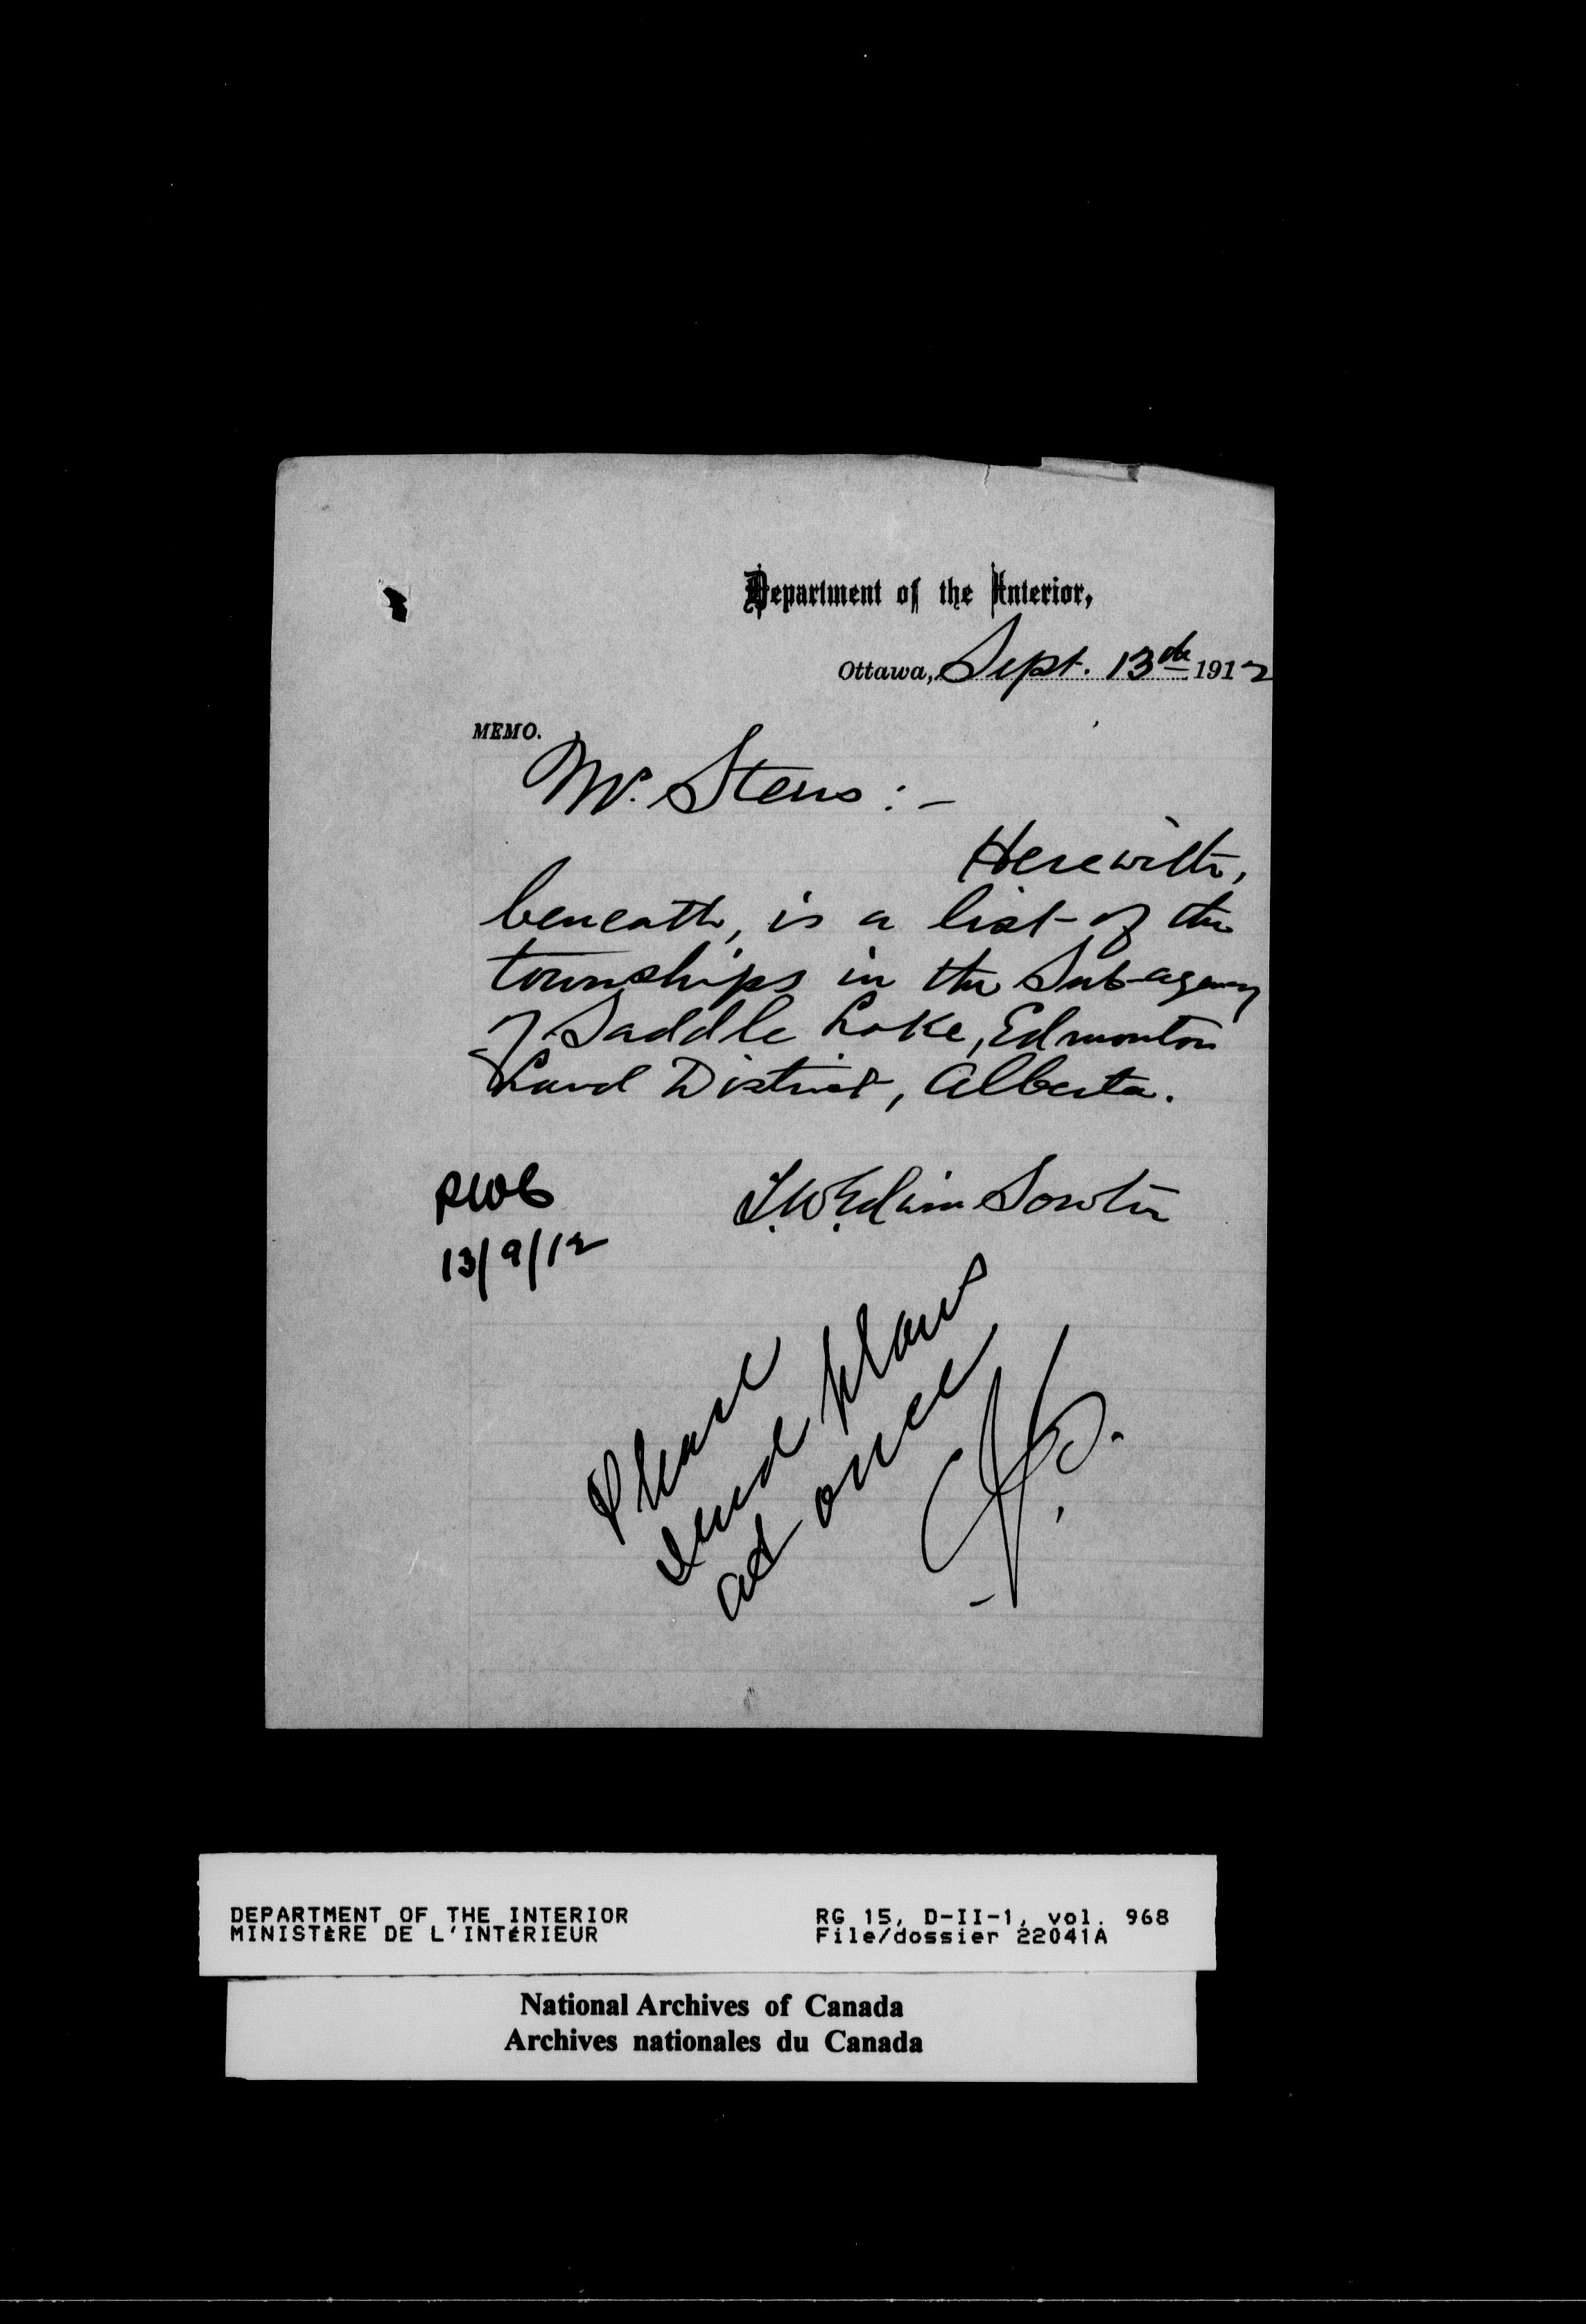 Department of the Interior,
Ottawa, Sept. 13th 1912
MEMO.
Mr. Stens:-
Herewith,
beneath, is a list of the
townships in the Sub-agency
of Saddle Lake, Edmonton
Land District, Alberta.
T.W. Edwin Sowter
13/9/12
Please
send plans
at once
DEPARTMENT OF THE INTERIOR
MINISTÈRE DE L'INTÉRIEUR
RG 15, D-II-1, vol. 968
File/dossier 22041A
National Archives of Canada
Archives nationales du Canada